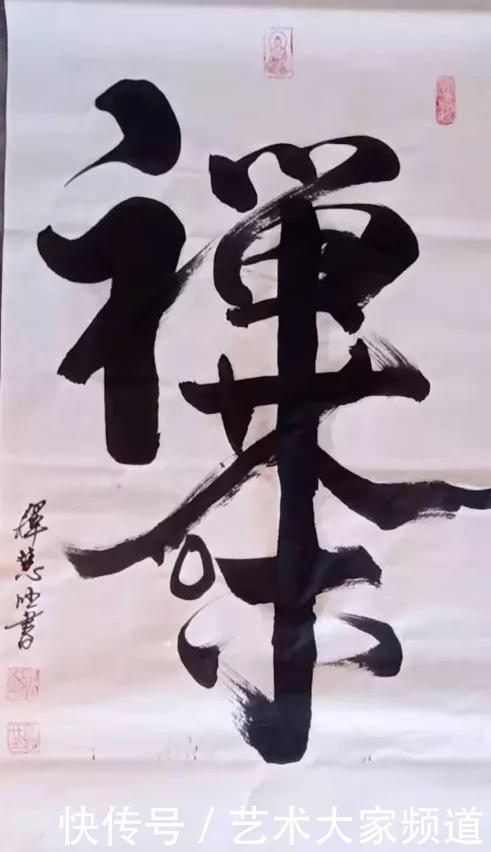 禅茶
釋慧書
快传号／艺术大家频道